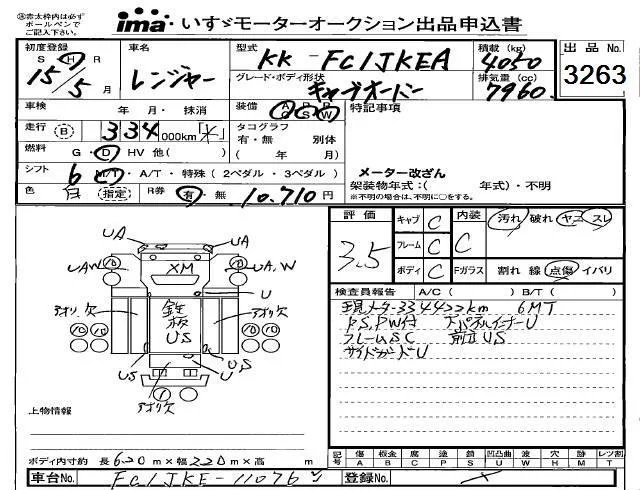 ※赤太枠内は必ず
ボールペンで
ご記入下さい。
ima いすゞモーターオークション出品申込書
初度登録 車名 型式 積載(kg) 出品 No.
S H R
15年 5月 レンジャー KK-FC1JKEA 4050
グレード・ボディ形状 排気量(cc)
キャブオーバー 7960
3263
車検 年・月・抹消 装備 A/C P/S P/W 特記事項
走行 B 334 000km
タコグラフ
有・無 別体
( 年 月)
燃料 G・D HV 他( )
シフト 6 M/T・A/T・特殊(2ペダル・3ペダル)
メーター改ざん
架装物年式:( 年式)・不明
※不明の場合は、不明に○をする。
色 白 指定 R券 有・無 10,710円
評価 キャブ C 内装 汚れ 破れ ヤニ スレ
3.5 フレーム C C
ボディ C Fガラス 割れ 線 点傷 イバリ
UA UA
UAW XM UA,W
U
アオリ欠 鉄板 US アオリ欠
US U
アオリ欠
検査員報告 A/C( ) B/T( )
現メーター334422km 6MT
PS,PW付 アパネルインナーU
フレームSC 前立US
サイドガードU
上物情報
記号 傷 板金 腐 塗 錆 凹凸曲 波 穴 跡 レツ割
A B C P S U W H M T
ボディ内寸約 長620m×幅220m×高 m
車台No. FC1JKE-11076 登録No.